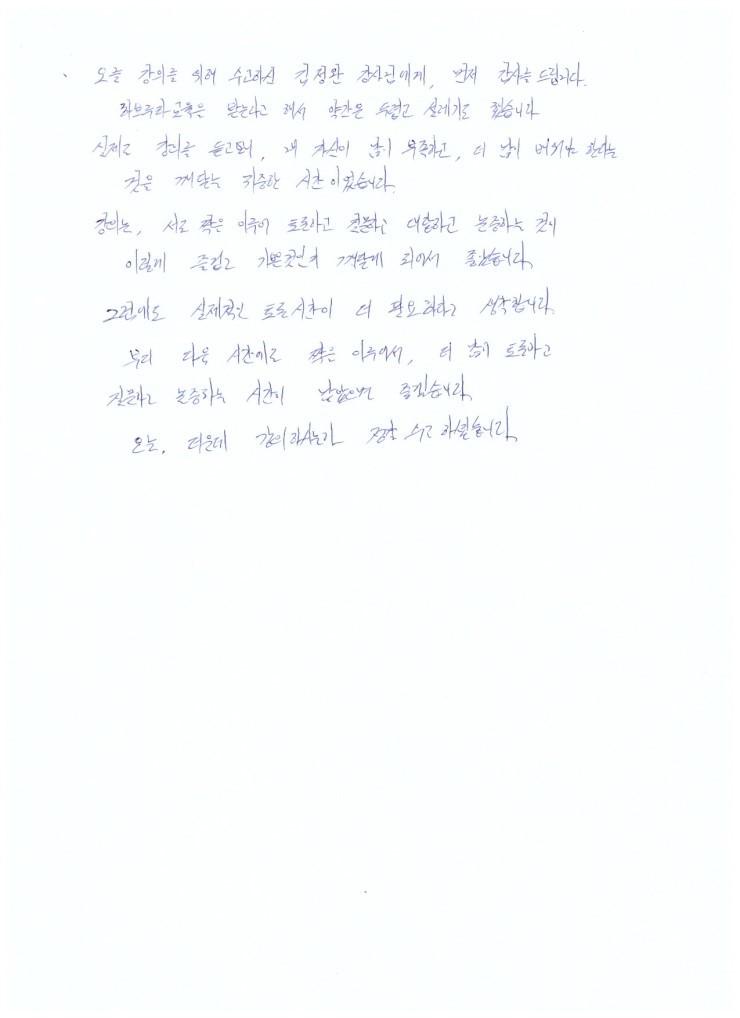 오늘 강의를 위해 수고하신 김정완 강사님에게, 먼저 감사를 드립니다.
하브루타 교육은 받는다고 해서 약간은 두렵고 설레기도 했습니다
실제로 강의를 듣고보니, 내 자신이 많이 부족하고, 더 많이 배워야 한다는
것은 깨닫는 귀중한 시간이었습니다.
강의는, 서로 짝은 이루어 토론하고 질문하고 대화하고 논증하는 것이
이렇게 즐겁고 기쁜것인지 깨닫게 되어서 좋았습니다
그런데도 실제적인 토론시간이 더 필요하다고 생각합니다.
부디 다음 시간에도 짝은 이루어서, 더 많이 토론하고
질문하고 논증하는 시간이 많았으면 좋겠습니다
오늘, 더운데 강의하시느라 정말 수고하셨습니다